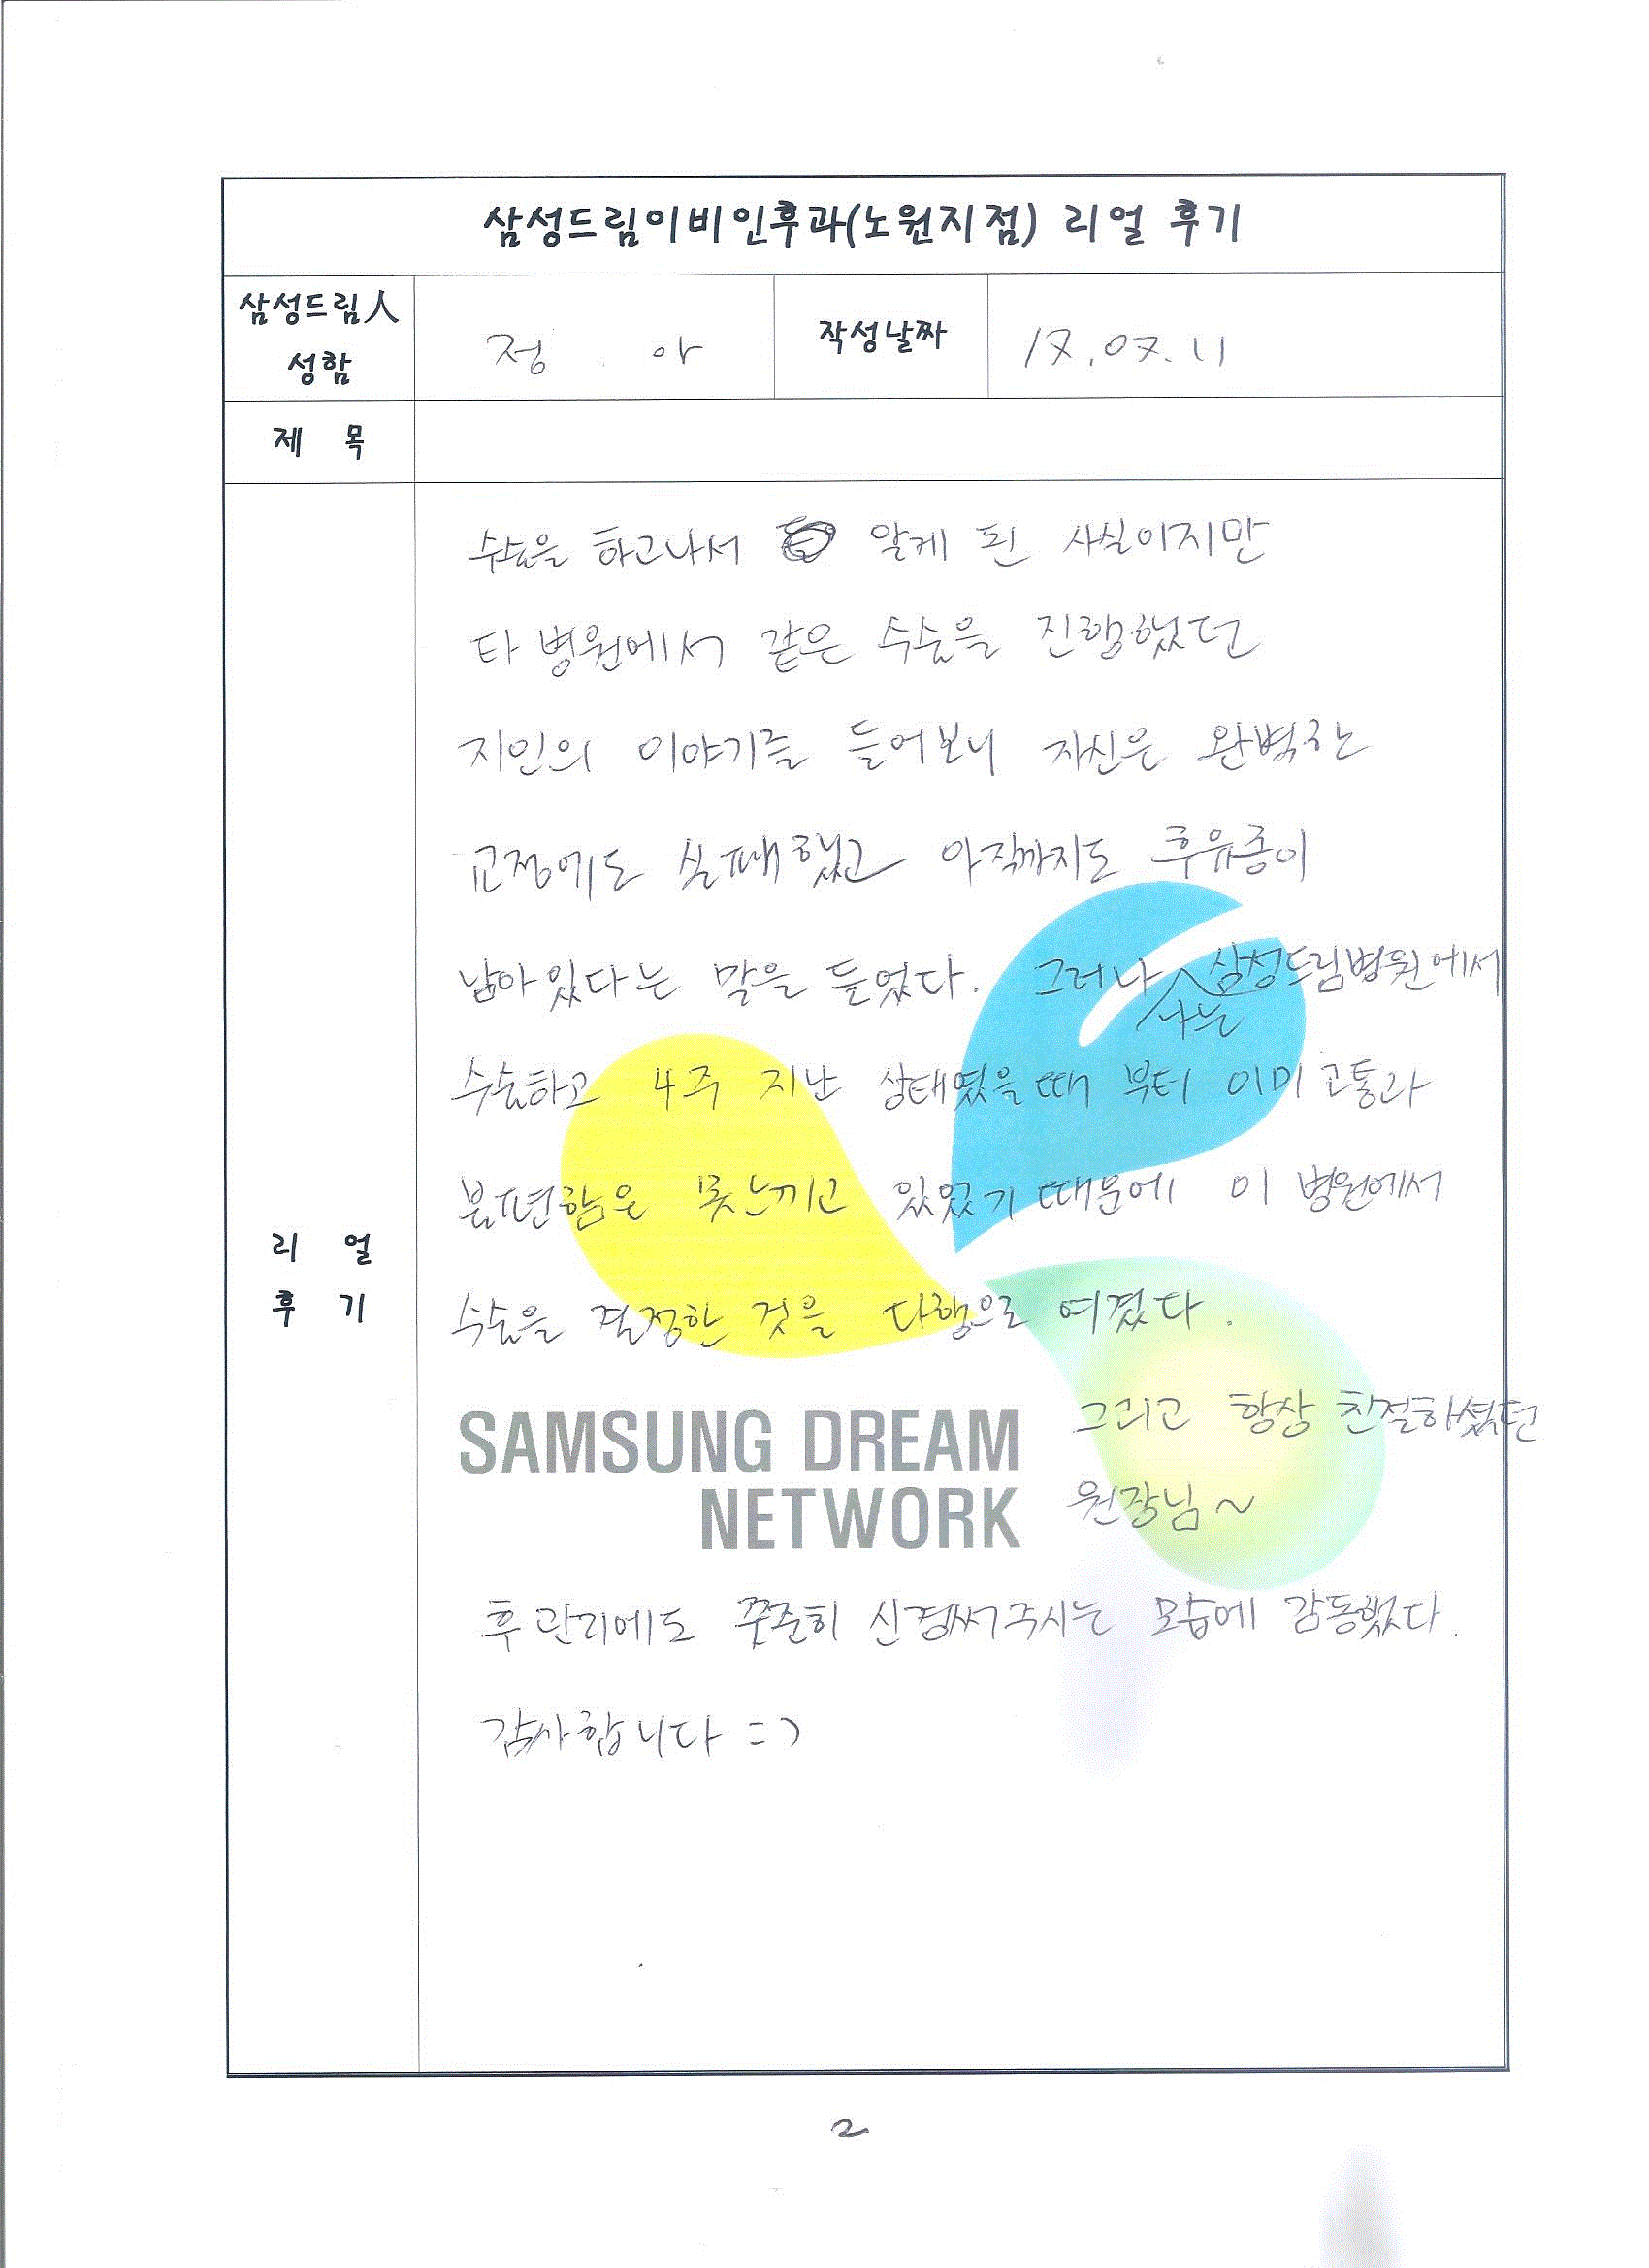 삼성드림이비인후과(노원지점) 리얼 후기
삼성드림人
성함
정 아
작성날짜
17.07.11
제 목
리 얼
후 기
수술을 하고나서 알게 된 사실이지만
타 병원에서 같은 수술을 진행했던
지인의 이야기를 들어보니 자신은 완벽한
교정에도 실패했고 아직까지도 후유증이
남아있다는 말을 들었다. 그러나 나는 삼성드림병원에서
수술하고 4주 지난 상태였을때 부터 이미 고통과
불편함은 못느끼고 있었기 때문에 이 병원에서
수술을 결정한 것을 다행으로 여겼다.
그리고 항상 친절하셨던
원장님~
SAMSUNG DREAM
NETWORK
후 관리에도 꾸준히 신경써주시는 모습에 감동했다.
감사합니다 =)
2